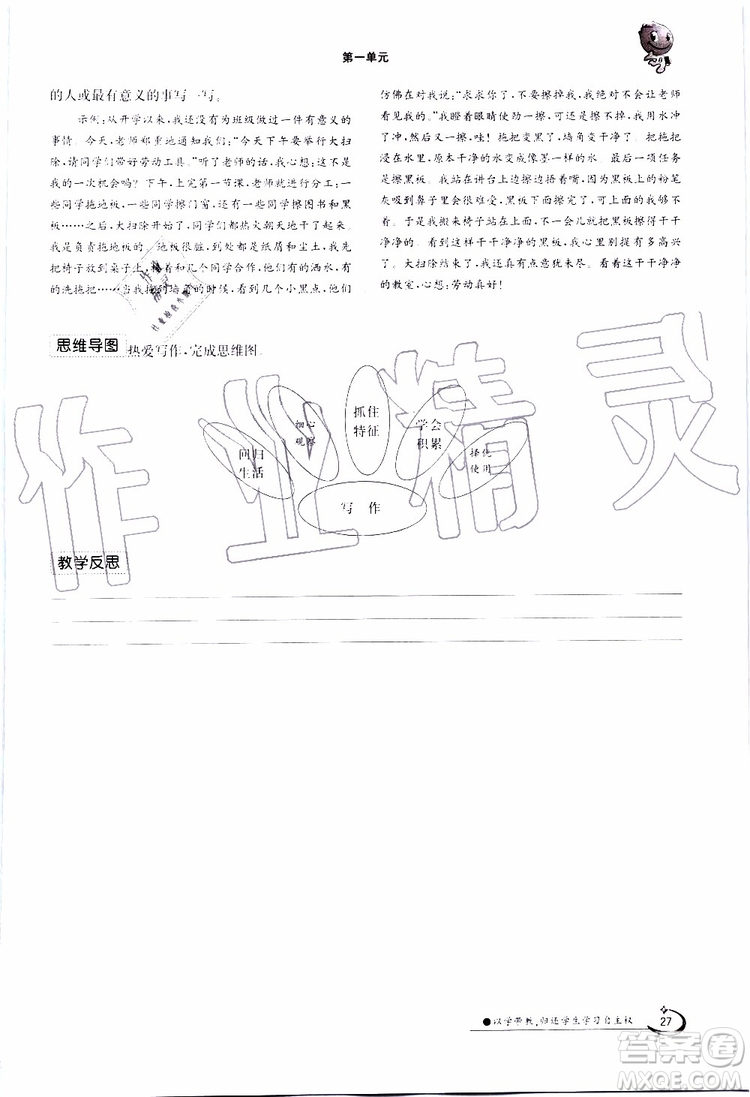 第一单元
的人或最有意义的事写一写。
示例:从开学以来,我还没有为班级做过一件有意义的
事情。今天,老师郑重地通知我们:“今天下午要举行大扫
除,请同学们带好劳动工具。”听了老师的话,我心想:这不是
我的一次机会吗?下午,上完第一节课,老师进行分工:一
些同学拖地板,一些同学擦门窗,还有一些同学擦图书和黑
板……大扫除开始了,同学们热火朝天地干了起来。
我是负责拖地板的。地板很脏,到处都是纸屑和尘土,我先
把椅子放到桌子上,看着和几个同学合作,有的洒水,有
的洗拖把……当我拖到墙角的时候,看到几个小黑点,他们
仿佛在对我说:“求求你了,不要擦掉我,我绝对不会让老师
看见我的。”我瞪着眼睛使劲一擦,可还是擦不掉,我用水冲
了冲,再一擦,哇!拖把变黑了,墙角变干净了。把拖把
浸在水里,原本干净的水变成像墨一样的水。最后一项任务
是擦黑板。我站在讲台上擦边捂着嘴,因为黑板上的粉笔
灰吸到鼻子里会很难受。于是我搬来椅子站在上面擦得干干
净净的。看到这干干净净的黑板,我心里面不知有多高兴
了。大扫除结束了,我还真有点意犹未尽。看着这干干净净
的教室,心想:劳动真好!
思维导图
热爱写作,完成思维图。
回归
生活
细心
观察
抓住
特征
学会
积累
择优
使用
写 作
教学反思
作业精灵
以学带教,归还学生学习自主权
27
答案圈
MXQE.COM